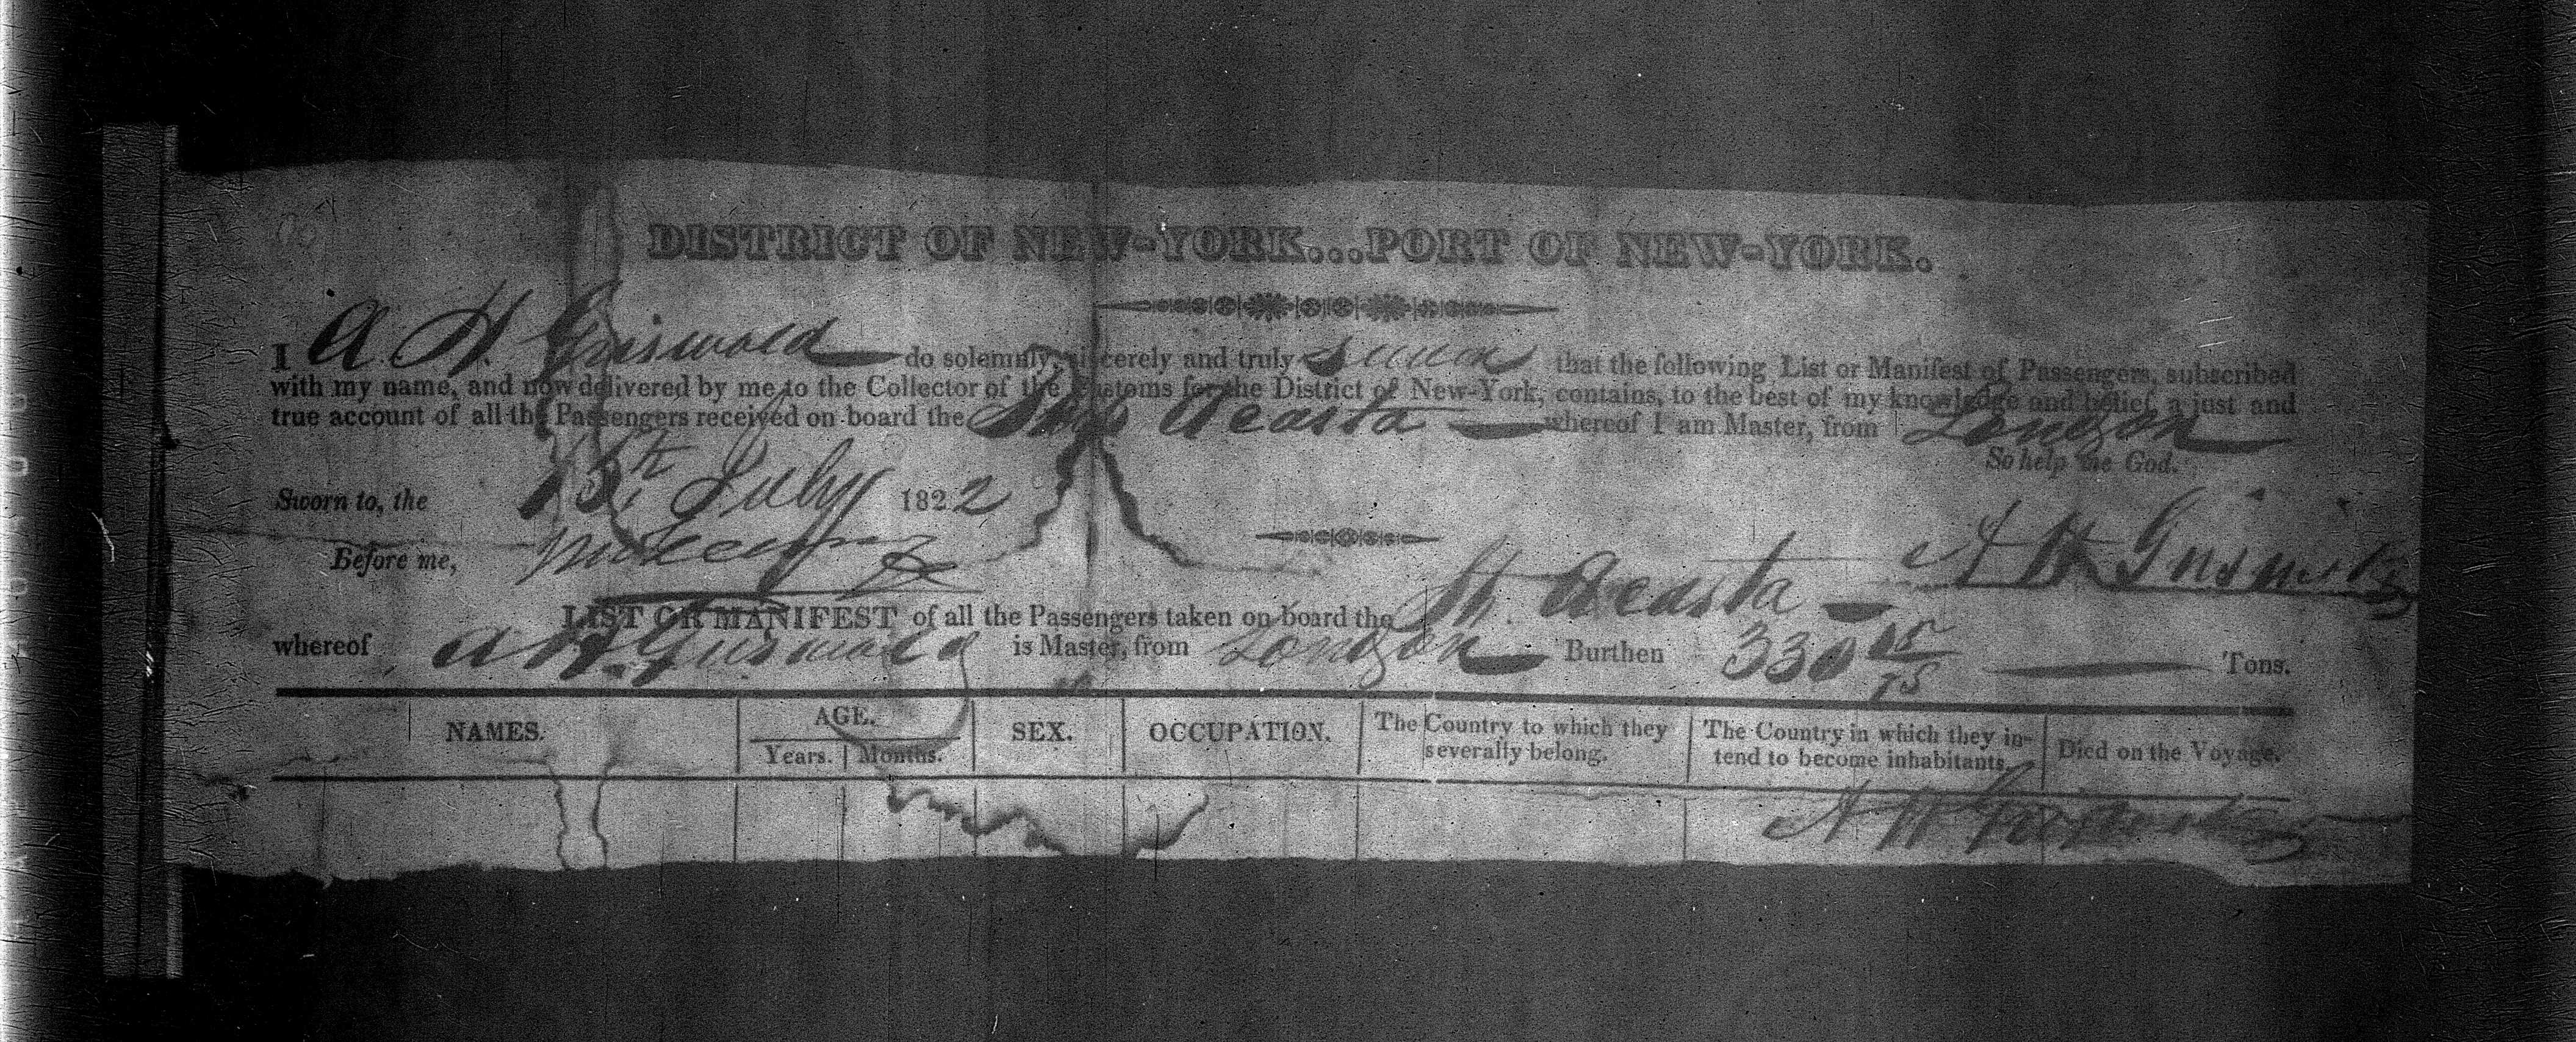 DISTRICT OF NEW-YORK...PORT OF NEW-YORK.
I A. H. Griswold do solemnly, sincerely and truly swear that the following List or Manifest of Passengers, subscribed
with my name, and now delivered by me to the Collector of the Customs for the District of New-York, contains, to the best of my knowledge and belief, a just and
true account of all the Passengers received on board the Ship Acasta whereof I am Master, from London
So help me God.
Sworn to, the 15th July 1822
Before me,
A H Griswold
LIST OR MANIFEST of all the Passengers taken on board the Sh. Acasta
whereof A H Griswold is Master, from London Burthen 330 Tons.
NAMES. AGE. SEX. OCCUPATION. The Country to which they severally belong. The Country in which they intend to become inhabitants. Died on the Voyage.
Years. Months.
A H Griswold